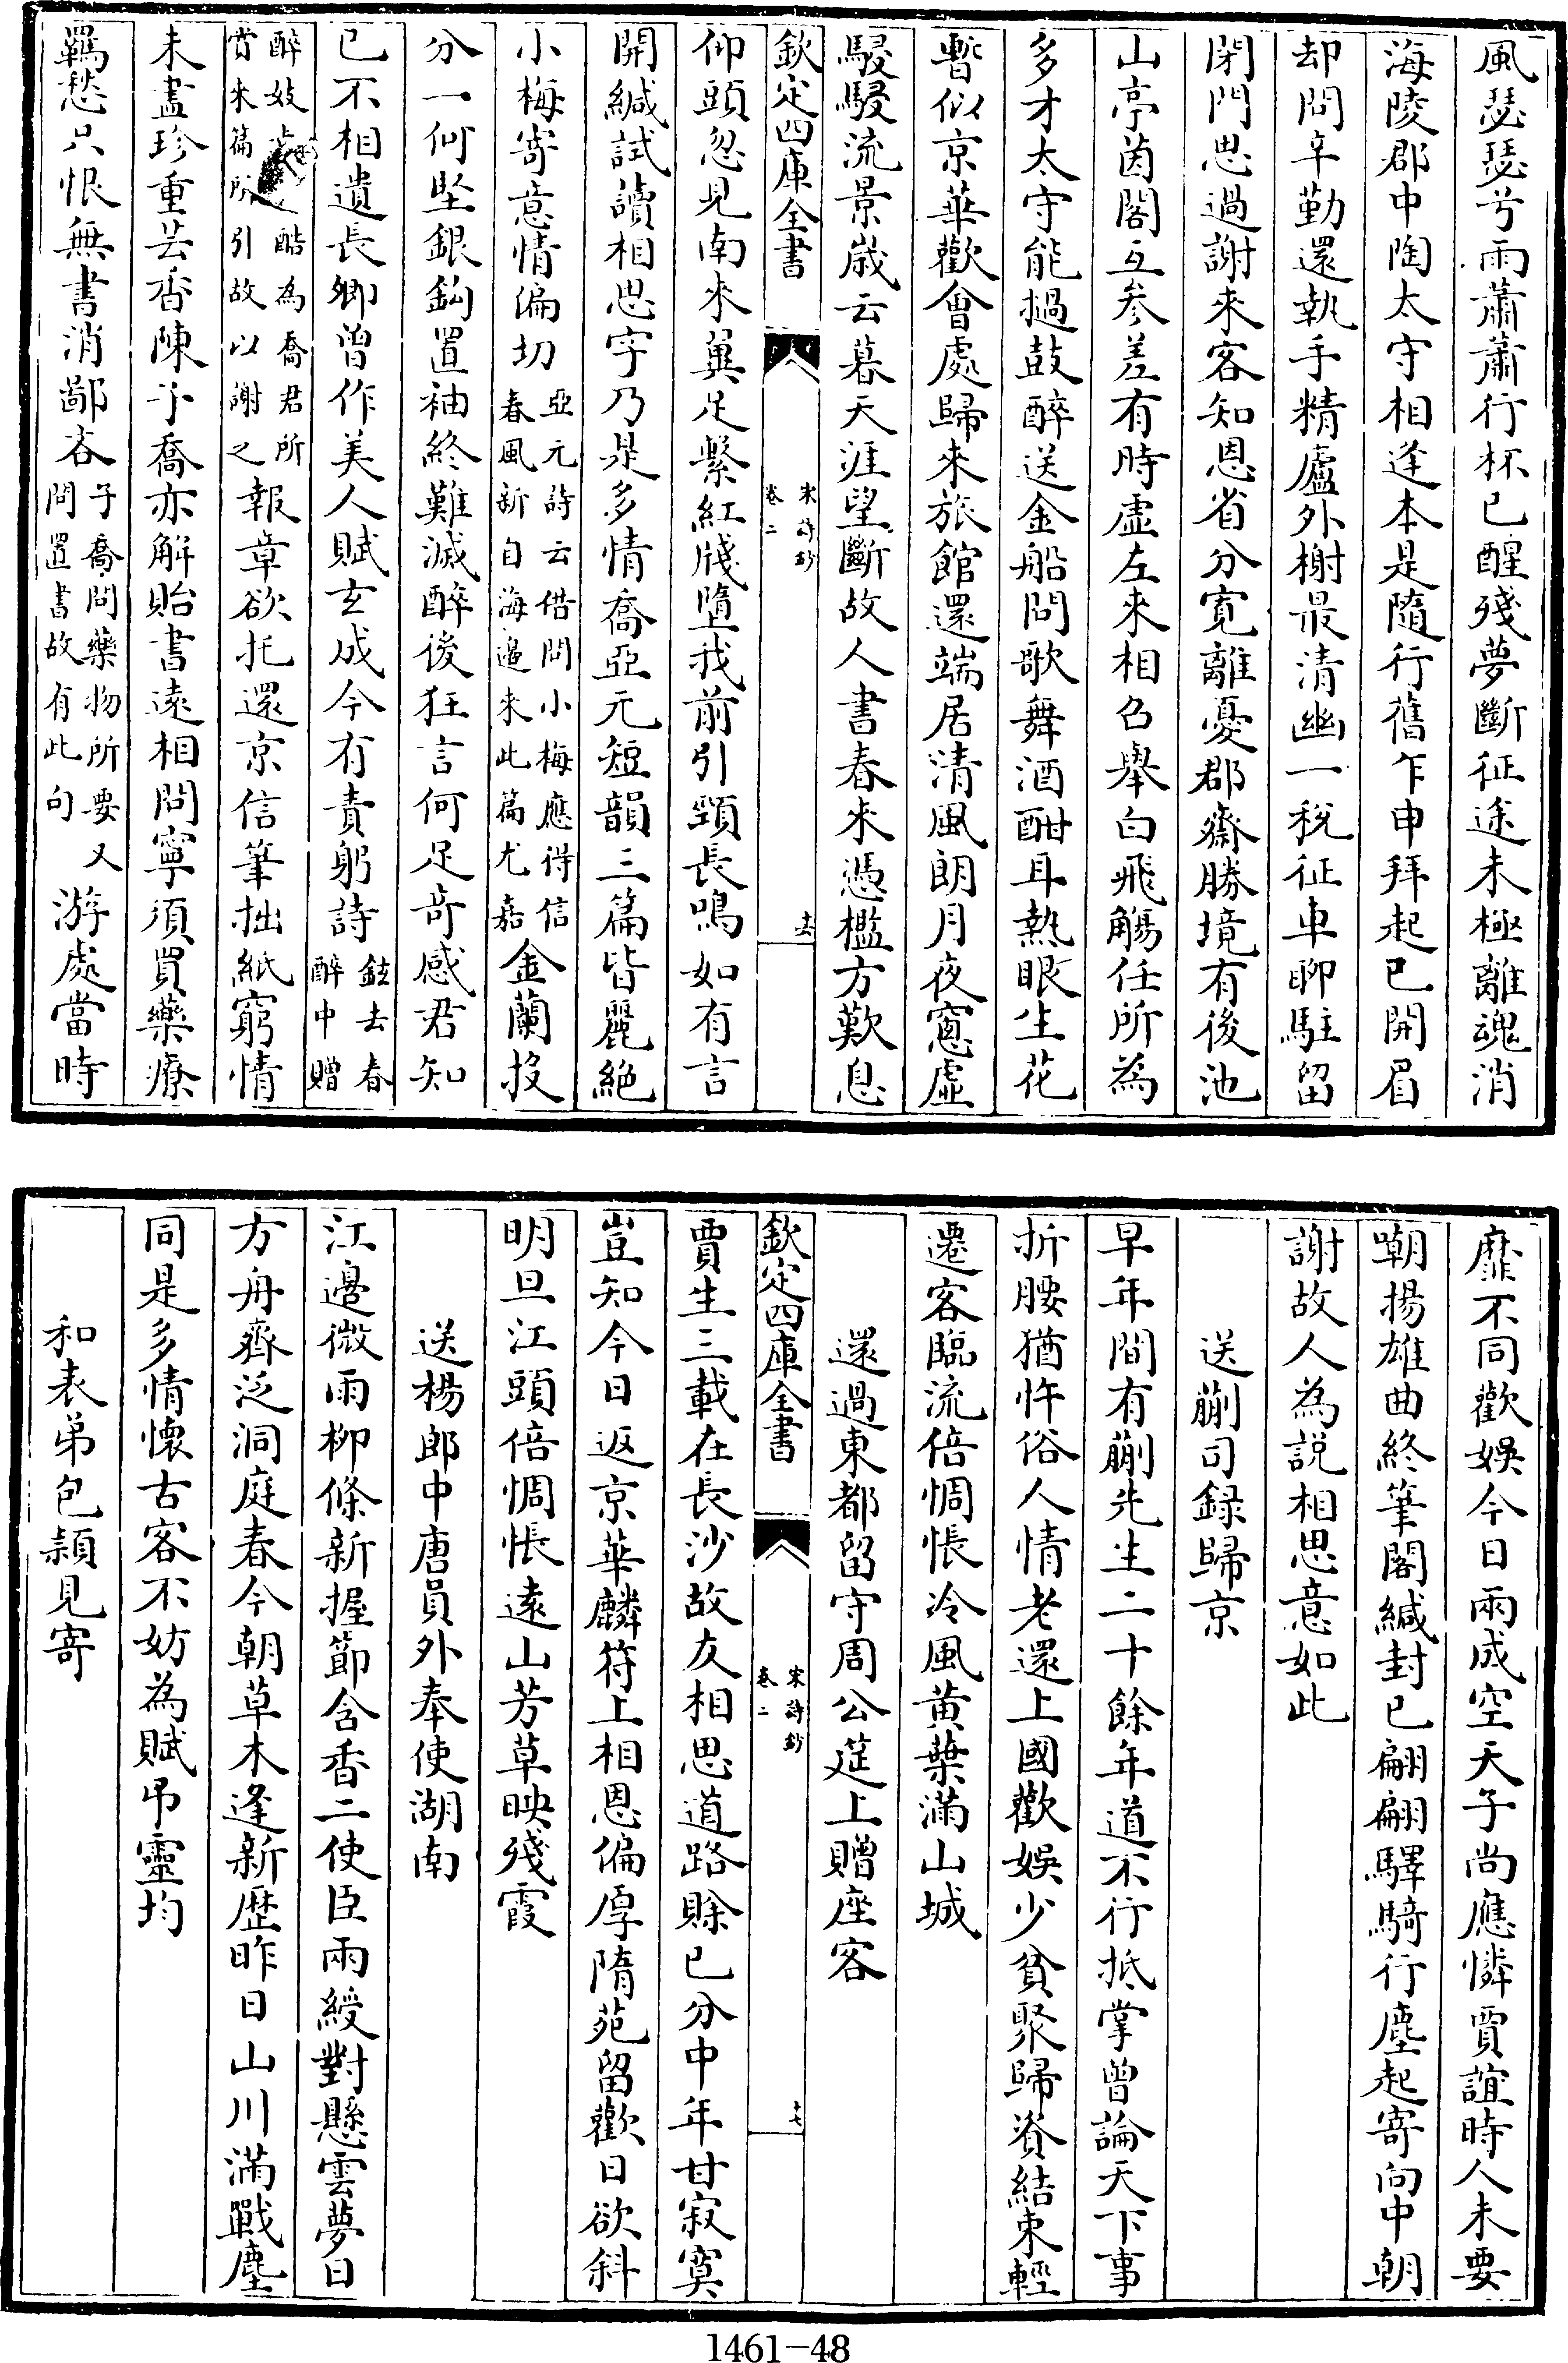 風瑟瑟兮雨蕭蕭行杯已醒殘夢斷征途未極離魂消
海陵郡中陶太守相逢本是隨行舊乍申拜起已開眉
却問辛勤還執手精廬外榭最清幽一稅征車聊駐留
閉門思過謝來客知恩省分寛離憂郡齋勝境有後池
山亭茵閣互參差有時虛左來相召舉白飛觴任所為
多才太守能撾鼓醉送金船問歌舞酒酣耳熱眼生花
暫似京華歡會處歸來旅館還端居清風朗月夜窻虛
駸駸流景歲云暮天涯望斷故人書春來憑檻方歎息
欽定四庫全書
宋詩鈔
卷二
十六
仰頭忽見南來翼足繫紅牋墮我前引頸長鳴如有言
開緘試讀相思字乃是多情喬亞元短韻三篇皆麗絕
小梅寄意情偏切
亞元詩云借問小梅應得信
春風新自海邊來此篇尤嘉
金蘭投
分一何堅銀鈎置袖終難滅醉後狂言何足奇感君知
已不相遺長卿曾作美人賦玄成今有責躬詩
鉉去春
醉中贈
醉妓
酷為喬君所
賞來篇所引故以謝之
報章欲托還京信筆拙紙窮情
未盡珍重芸香陳子喬亦解貽書遠相問寧須買藥療
羇愁只恨無書消鄙吝
子喬問藥物所要又
問置書故有此句
游處當時
靡不同歡娛今日兩成空天子尚應憐賈誼時人未要
嘲揚雄曲終筆閣緘封已翩翩驛騎行塵起寄向中朝
謝故人為說相思意如此
送蒯司録歸京
早年間有蒯先生二十餘年道不行抵掌曾論天下事
折腰猶忤俗人情老還上國歡娛少貧聚歸資結束輕
遷客臨流倍惆悵冷風黄葉滿山城
還過東都留守周公筵上贈座客
欽定四庫全書
宋詩鈔
卷二
十七
賈生三載在長沙故友相思道路賒已分中年甘寂寞
豈知今日返京華麟符上相恩偏厚隋苑留歡日欲斜
明旦江頭倍惆悵遠山芳草映殘霞
送楊郎中唐員外奉使湖南
江邉微雨柳條新握節含香二使臣兩綬對懸雲夢日
方舟齊泛洞庭春今朝草木逢新歴昨日山川滿戰塵
同是多情懷古客不妨為賦弔靈均
和表弟包頴見寄
1461-48